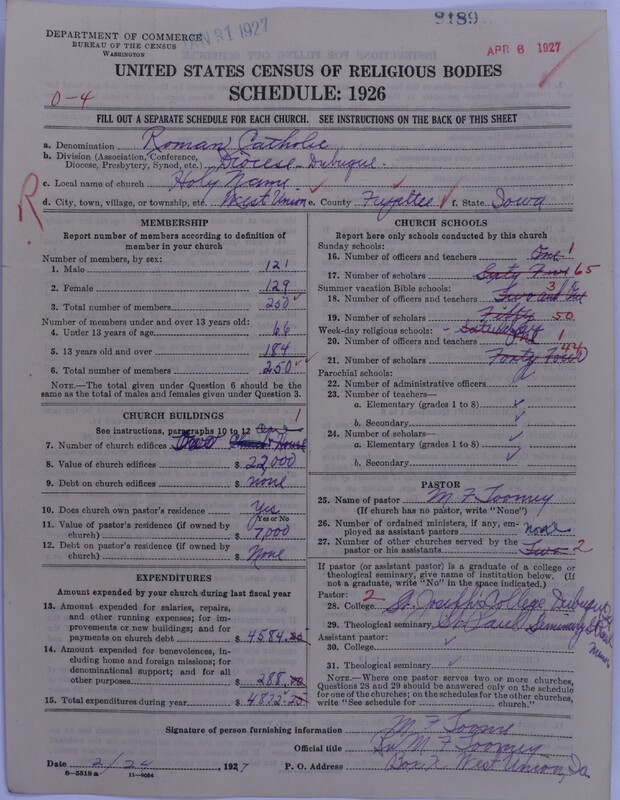 DEPARTMENT OF COMMERCE
BUREAU OF THE CENSUS
WASHINGTON
JAN 31 1927
9189
APR 6 1927
UNITED STATES CENSUS OF RELIGIOUS BODIES
SCHEDULE: 1926
0-4
FILL OUT A SEPARATE SCHEDULE FOR EACH CHURCH. SEE INSTRUCTIONS ON THE BACK OF THIS SHEET
a. Denomination Roman Catholic
b. Division (Association, Conference, Diocese, Presbytery, Synod, etc.) Diocese - Dubuque.
c. Local name of church Holy Name
d. City, town, village, or township, etc. West Union e. County Fayettee f. State Iowa
R
MEMBERSHIP
Report number of members according to definition of
member in your church
Number of members, by sex:
1. Male 121
2. Female 129
3. Total number of members 250
Number of members under and over 13 years old:
4. Under 13 years of age 66
5. 13 years old and over 184
6. Total number of members 250
NOTE.—The total given under Question 6 should be
the same as the total of males and females given under Question 3.
CHURCH BUILDINGS
See instructions, paragraphs 10 to 12 One 1
7. Number of church edifices
8. Value of church edifices $ 22,000
9. Debt on church edifices $ none
10. Does church own pastor's residence Yes
Yes or No
11. Value of pastor's residence (if owned by
church) $ 7,000
12. Debt on pastor's residence (if owned by
church) $ None
EXPENDITURES
Amount expended by your church during last fiscal year
13. Amount expended for salaries, repairs,
and other running expenses; for im-
provements or new buildings; and for
payments on church debt $ 4584.20
14. Amount expended for benevolences,
including home and foreign missions; for
denominational support; and for all
other purposes $ 288.00
15. Total expenditures during year $ 4872.20
CHURCH SCHOOLS
Report here only schools conducted by this church
Sunday schools:
16. Number of officers and teachers One 1
17. Number of scholars Sixty Five 65
Summer vacation Bible schools:
18. Number of officers and teachers 3
19. Number of scholars Fifty 50
Week-day religious schools: - Saturday
20. Number of officers and teachers One 1
21. Number of scholars Forty Four 44
Parochial schools:
22. Number of administrative officers
23. Number of teachers—
a. Elementary (grades 1 to 8)
b. Secondary
24. Number of scholars—
a. Elementary (grades 1 to 8)
b. Secondary
PASTOR
25. Name of pastor M F Toomey
(If church has no pastor, write "None")
26. Number of ordained ministers, if any, em-
ployed as assistant pastors none
27. Number of other churches served by the
pastor or his assistants Two 2
If pastor (or assistant pastor) is a graduate of a college or
theological seminary, give name of institution below. (If
not a graduate, write "No" in the space indicated.)
Pastor: 2
28. College St. Joseph's College Dubuque
29. Theological seminary St Paul Seminary St Paul Minn.
Assistant pastor:
30. College
31. Theological seminary
NOTE.—Where one pastor serves two or more churches,
Questions 28 and 29 should be answered only on the schedule
for one of the churches; on the schedules for the other churches,
write "See schedule for church."
Signature of person furnishing information M F Toomey
Official title M F Toomey
Date 2/24, 1927 P. O. Address Box X West Union, Ia
6-5518 a 11-9084